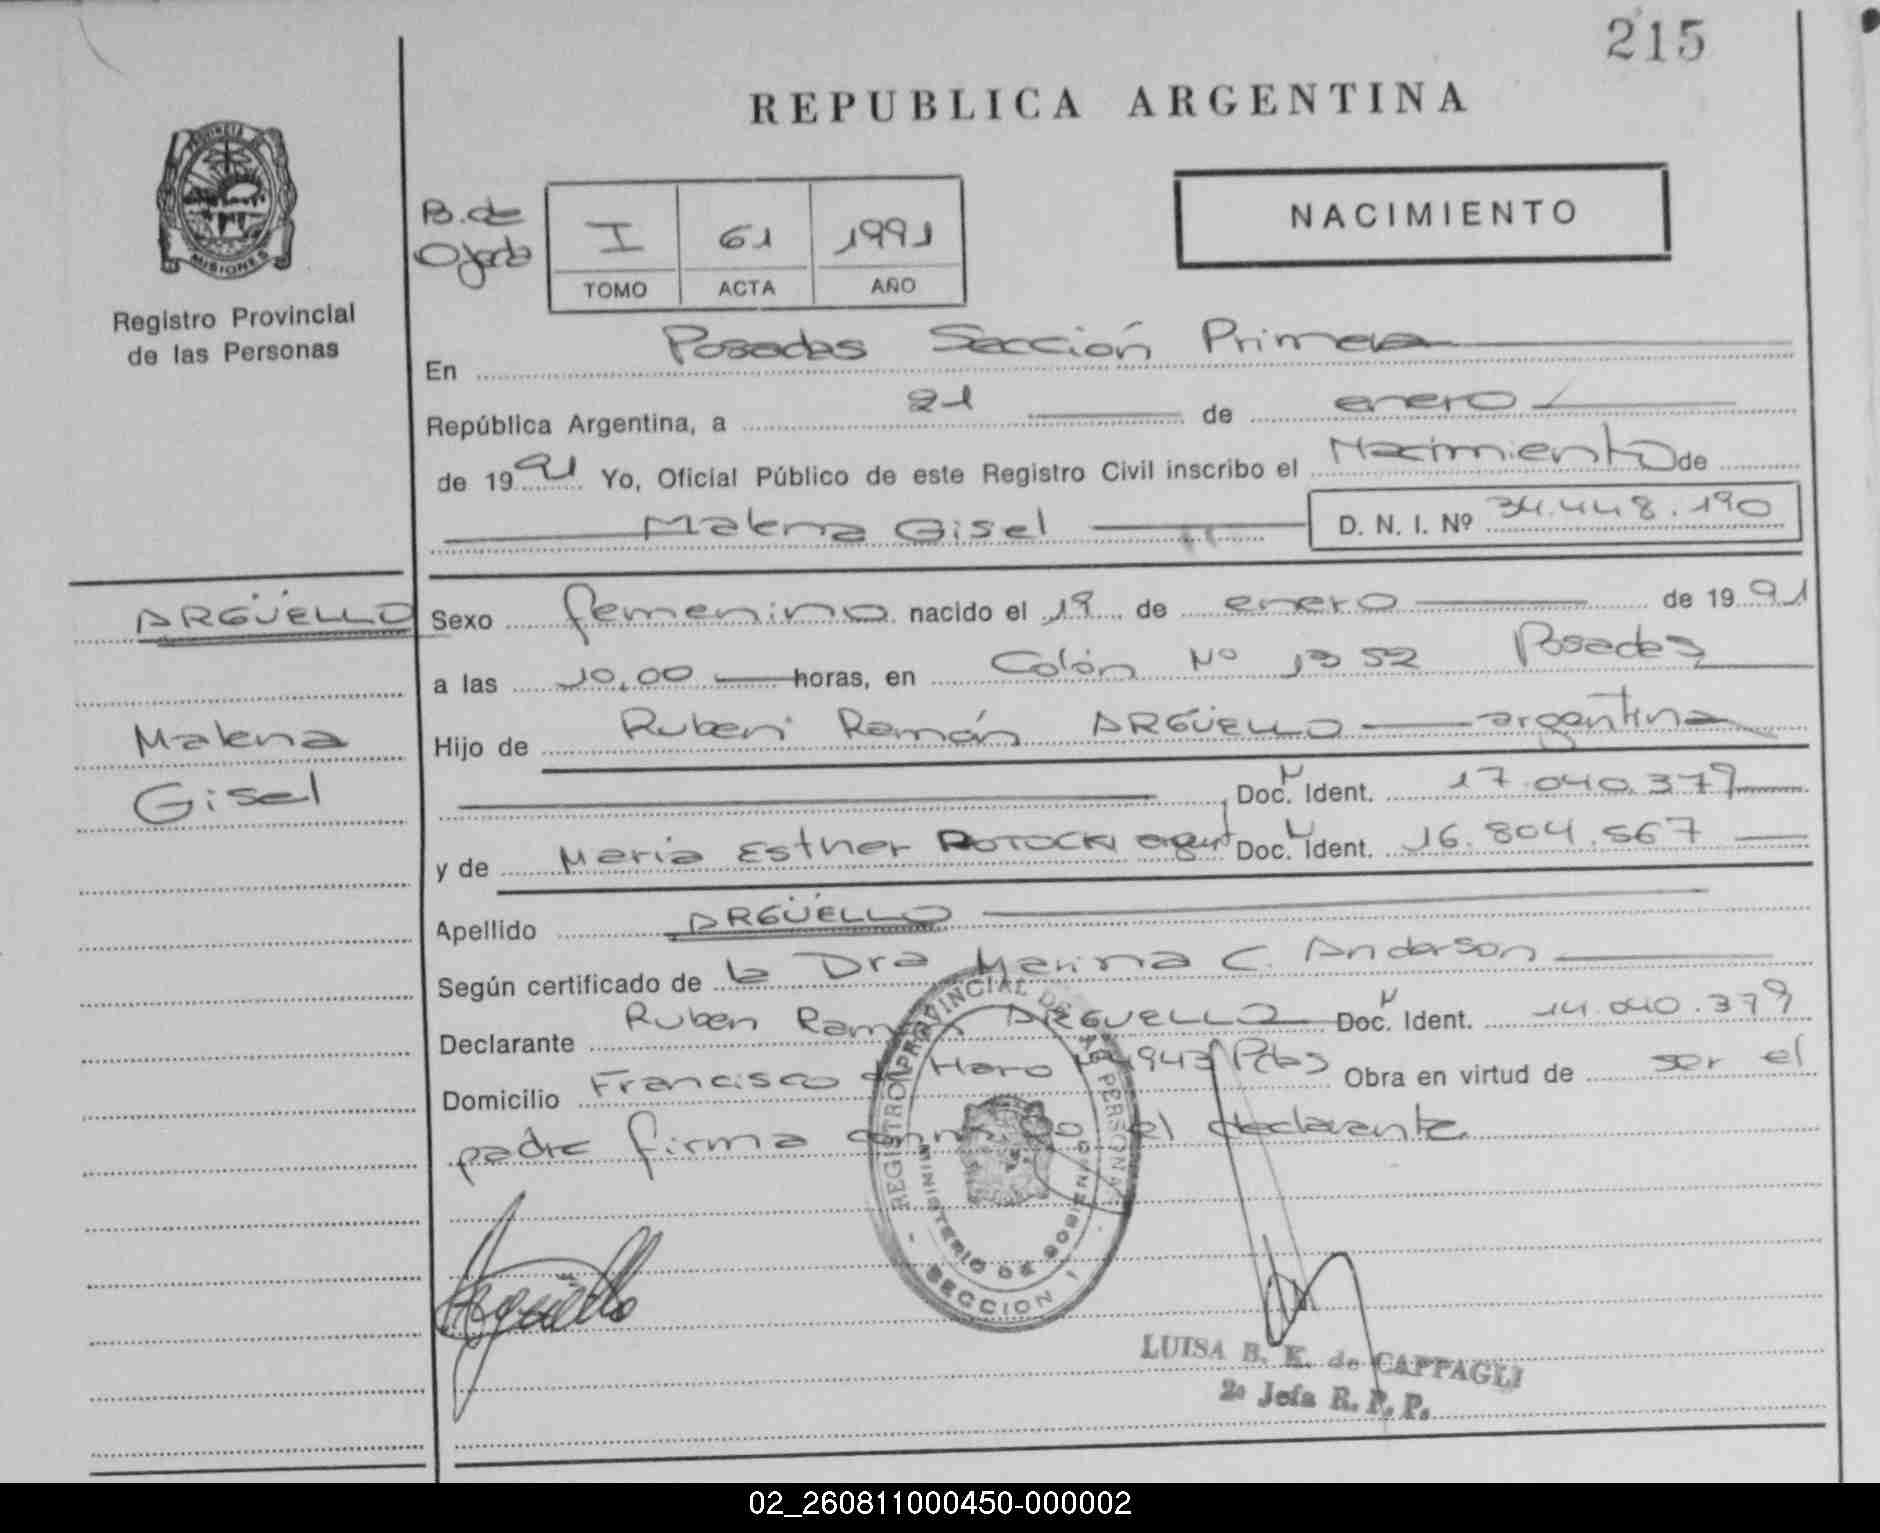 215
REPUBLICA ARGENTINA
PROVINCIA DE
MISIONES
Registro Provincial
de las Personas
B. de
Ojeda
I 61 1991
TOMO ACTA AÑO
NACIMIENTO
En Posadas Sección Primera
República Argentina, a 21 de enero
de 1991 Yo, Oficial Público de este Registro Civil inscribo el Nacimiento de
Malena Gisel D. N. I. Nº 34.448.190
ARGÜELLO
Malena
Gisel
Sexo femenino nacido el 19 de enero de 1991
a las 10,00 horas, en Colón Nº 1352 Posadas
Hijo de Ruben Ramón ARGÜELLO argentina
Doc. N Ident. 17.040.379
y de Maria Esther POTOCKI argent Doc. N Ident. 16.804.567
Apellido ARGÜELLO
Según certificado de la Dra Marina C. Anderson
Declarante Ruben Ramón ARGUELLO Doc. N Ident. 14.040.379
Domicilio Francisco de Haro Nº 4943 Pdas Obra en virtud de ser el
padre firma conmigo el declarante
REGISTRO PROVINCIAL DE LAS PERSONAS
MINISTERIO DE GOBIERNO
SECCION 1
Argüello
LUISA B. K. de CAPPAGLI
2a Jefa R. P. P.
02_260811000450-000002